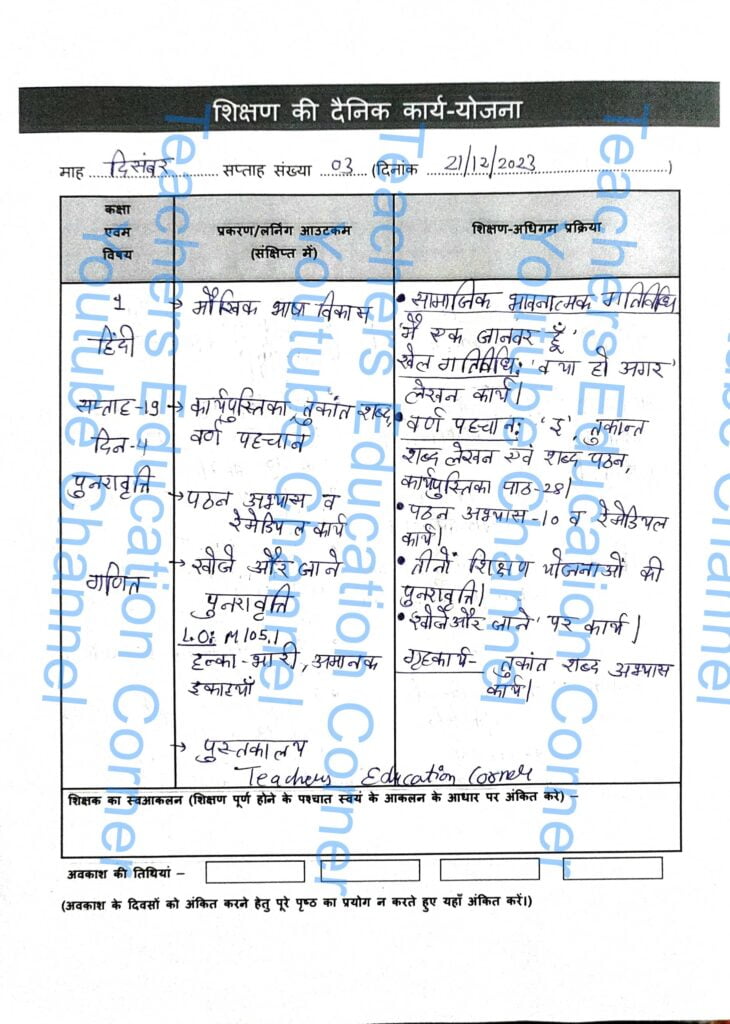 शिक्षण की दैनिक कार्य-योजना
माह दिसंबर सप्ताह संख्या 03 (दिनांक 21/12/2023)
कक्षा
एवम
विषय
प्रकरण/लर्निंग आउटकम
(संक्षिप्त में)
शिक्षण-अधिगम प्रक्रिया
1
हिंदी
सप्ताह-19
दिन-4
पुनरावृत्ति
गणित
→ मौखिक भाषा विकास
→ कार्यपुस्तिका, तुकांत शब्द,
वर्ण पहचान
→ पठन अभ्यास व
रेमेडियल कार्य
→ खोजे और जाने
पुनरावृत्ति
L.O: M105.1
हल्का-भारी, अमानक
इकाइयाँ
→ पुस्तकालय
• सामाजिक भावनात्मक गतिविधि
'मैं एक जानवर हूँ'
खेल गतिविधि: 'क्या हो अगर'
लेखन कार्य।
• वर्ण पहचान: 'इ', तुकान्त
शब्द लेखन एवं शब्द पठन,
कार्यपुस्तिका पाठ-28।
• पठन अभ्यास-10 व रेमेडियल
कार्य।
• तीनों शिक्षण योजनाओं की
पुनरावृत्ति।
• 'खोजें और जाने' पर कार्य।
गृहकार्य- तुकांत शब्द अभ्यास
कार्य।
Teachers Education Corner
शिक्षक का स्वआकलन (शिक्षण पूर्ण होने के पश्चात स्वयं के आकलन के आधार पर अंकित करे) –
अवकाश की तिथियां –
(अवकाश के दिवसों को अंकित करने हेतु पूरे पृष्ठ का प्रयोग न करते हुए यहाँ अंकित करें।)
Teachers Education Corner
Youtube Channel
Teachers Education Corner
Youtube Channel
Teachers Education Corner
Youtube Channel